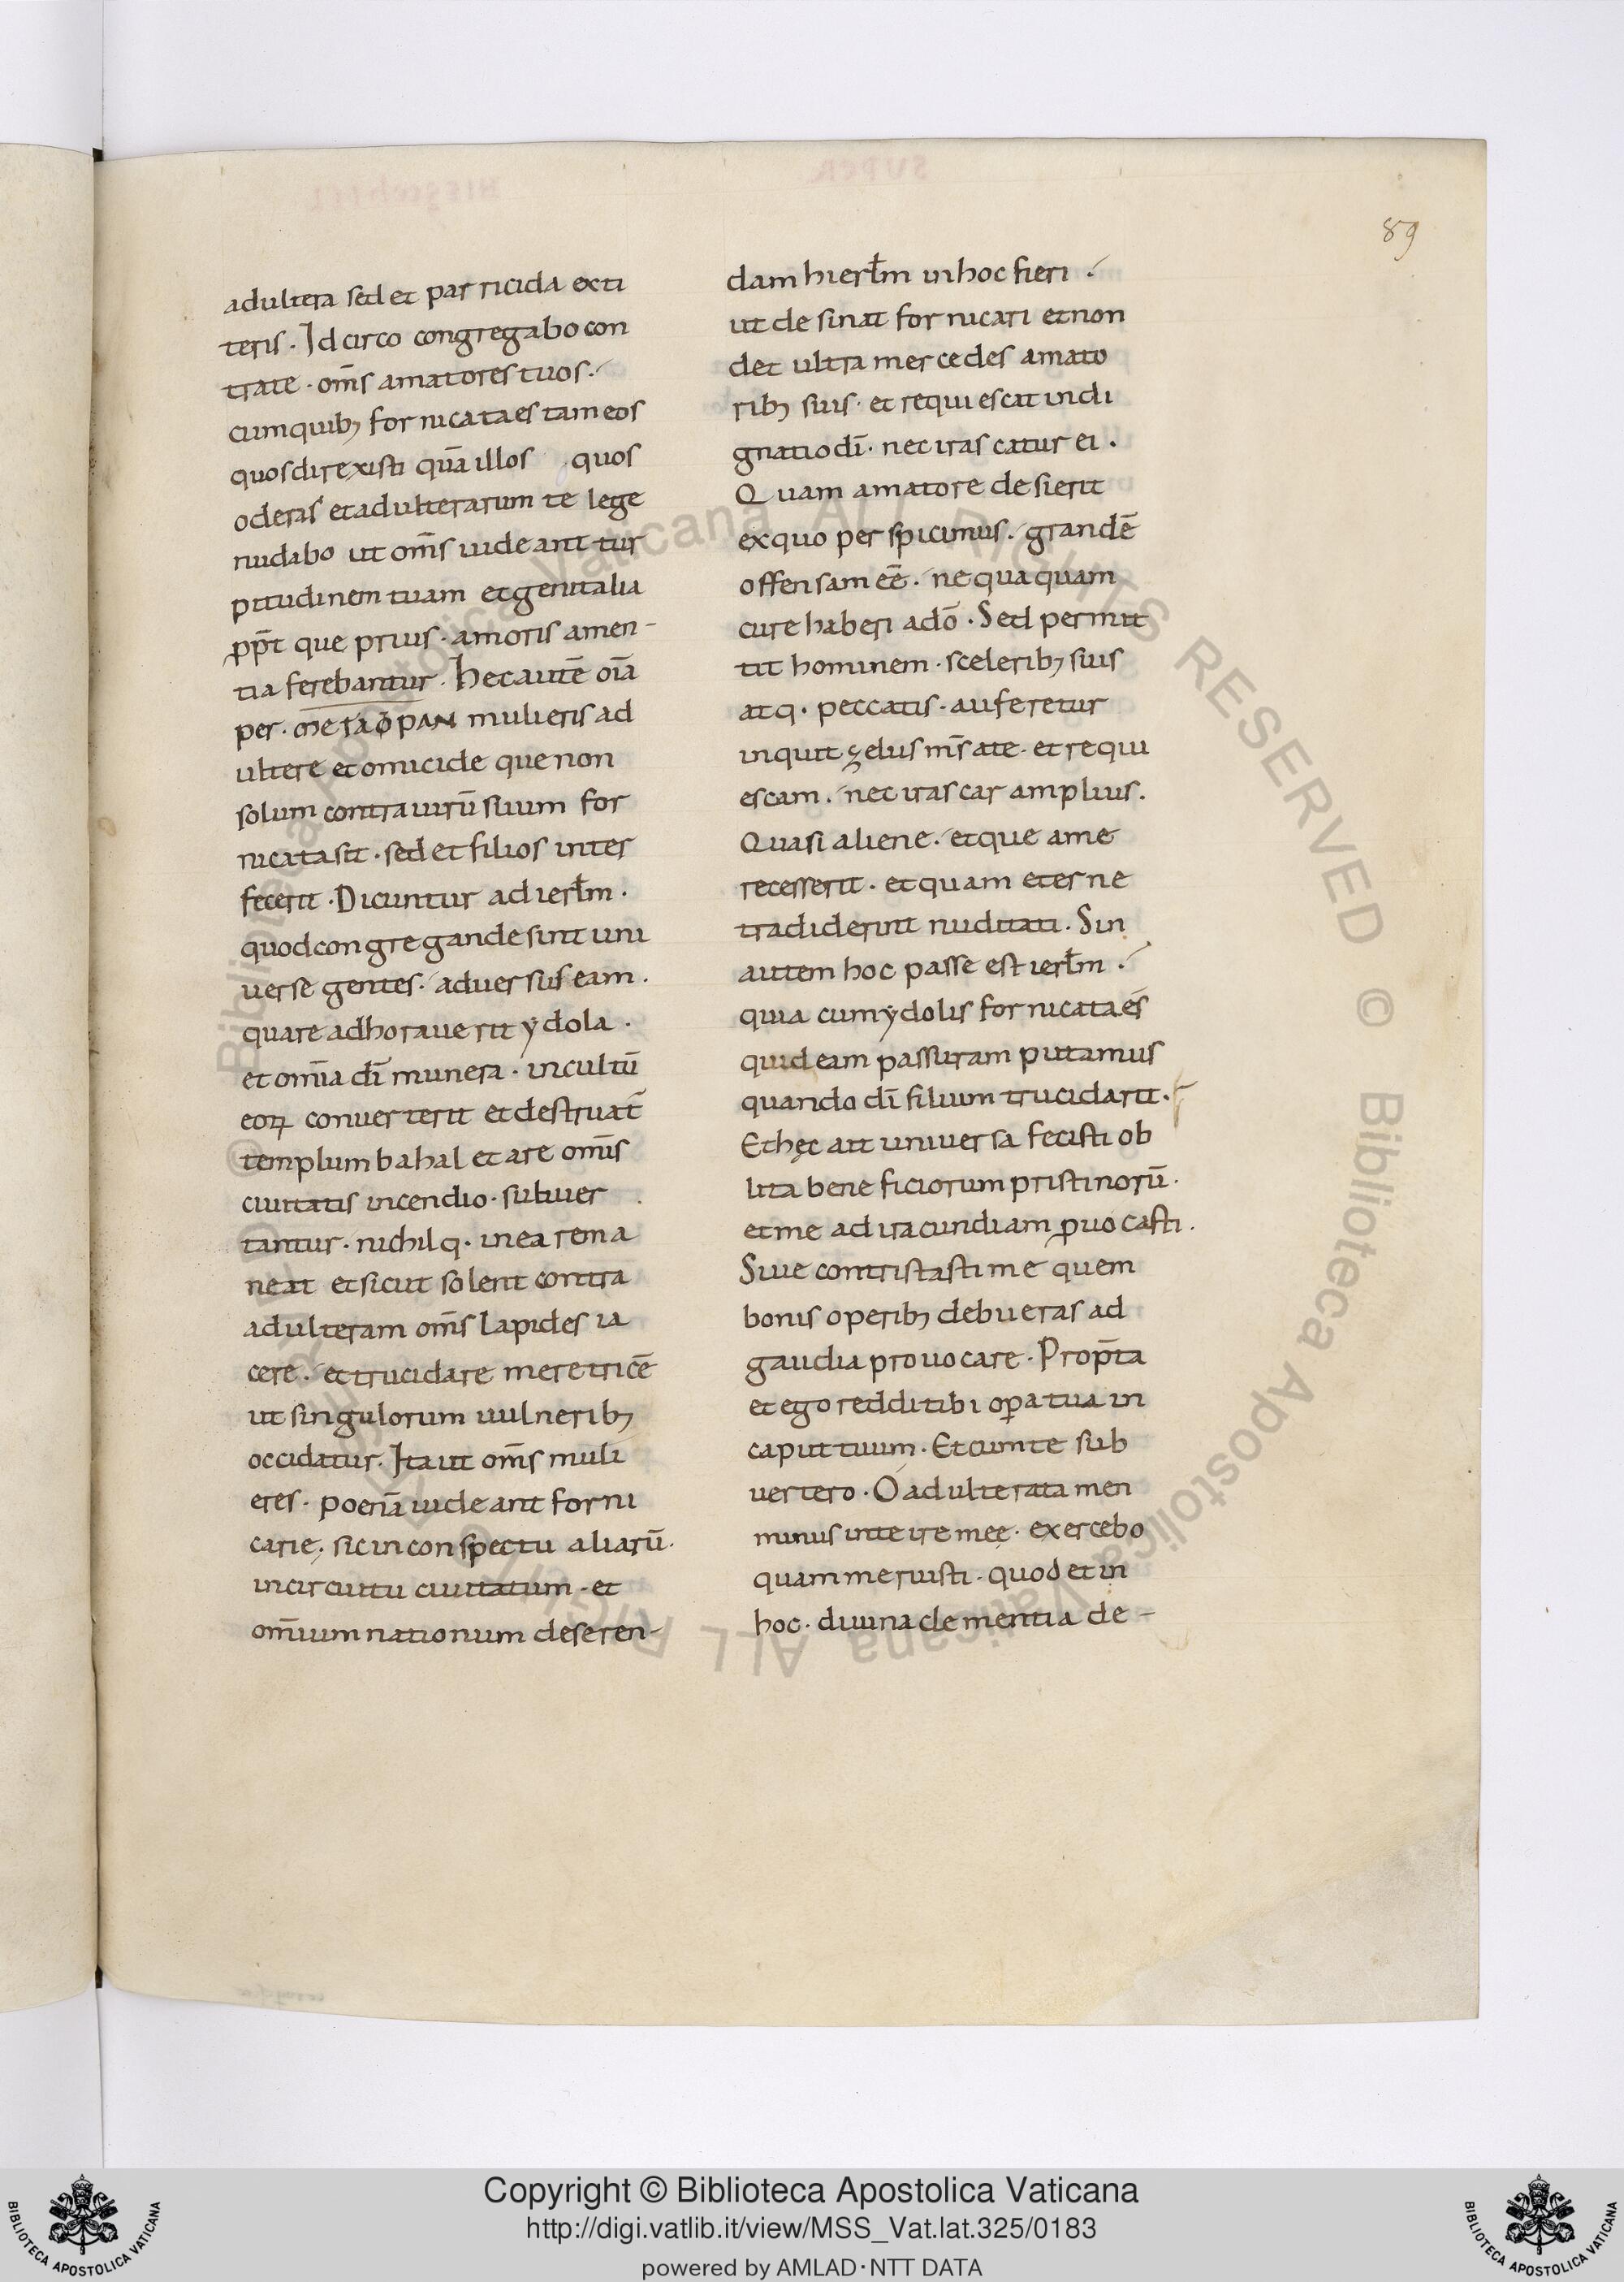 89
adultera sed et parricida exti
teris · Idcirco congregabo con
tra te · om̄s amatores tuos ·
cum quib; fornicata es tam eos
quos direxisti quā illos quos
oderas et adulterarum te lege
nudabo ut om̄s uideant tur
pitudinem tuam et genitalia
ꝓp̄t que prius · amoris amen-
tia ferebantur · hec autē oīa
per · meTaȮPAN mulieris ad
ultere et omicide que non
solum contra uirū suum for
nicata sit · sed et filios inter
fecerit · Dicuntur ad ierłm ·
quod congregande sint uni
uerse gentes · aduersus eam ·
quare adhorauerit ẏdola ·
et om̄ia dī munera · in cultū
eoꝝ conuerterit et destruat̄
templum bahal et are om̄is
ciuitatis incendio · subuer
tantur · nichilq · in ea rema
neat et sicut solent contra
adulteram om̄s lapides ia
cere · et trucidare meretricē
ut singulorum uulnerib;
occidatur · Ita ut om̄s muli
eres · poenā uideant forni
carie · sic in conspectu aliarū ·
in circuitu ciuitatum · et
om̄ium nationum deseren-
dam hierłm in hoc fieri ·
ut desinat fornicari et non
det ultra mercedes amato
rib; suis · et requiescat indi
gnatio dī · nec irascatur ei ·
Quam amatore desierit
ex quo perspicimus · grandē
offensam eē · nequaquam
cure haberi a dō · Sed permit
tit hominem · scelerib; suis
atq · peccatis · auferetur
inquit zelus m̄s a te · et requi
escam · nec irascar amplius ·
Quasi aliene · et que a me
recesserit · et quam eterne
tradiderint nuditati · Sin
autem hoc passe est ierłm ·
quia cum ẏdolis fornicata es
quid eam passuram putamus
quando dī filium trucidarit ·
Et hęc ait uniuersa fecisti ob
lita beneficiorum pristinorū ·
et me ad iracundiam ꝓuocasti ·
Siue contristasti me quem
bonis operib; debueras ad
gaudia prouocare · Prop̄ta
et ego reddi tibi oꝑa tua in
caput tuum · Et cum te sub
uertero · O adulterata men
minus in te ire meę · exercebo
quam meruisti · quod et in
hoc · diuina clementia de-
Copyright © Biblioteca Apostolica Vaticana
http://digi.vatlib.it/view/MSS_Vat.lat.325/0183
powered by AMLAD·NTT DATA
BIBLIOTECA APOSTOLICA VATICANA
BIBLIOTECA APOSTOLICA VATICANA
© Biblioteca Apostolica Vaticana ALL RIGHTS RESERVED © Biblioteca Apostolica Vaticana ALL RIGHTS RESERVED